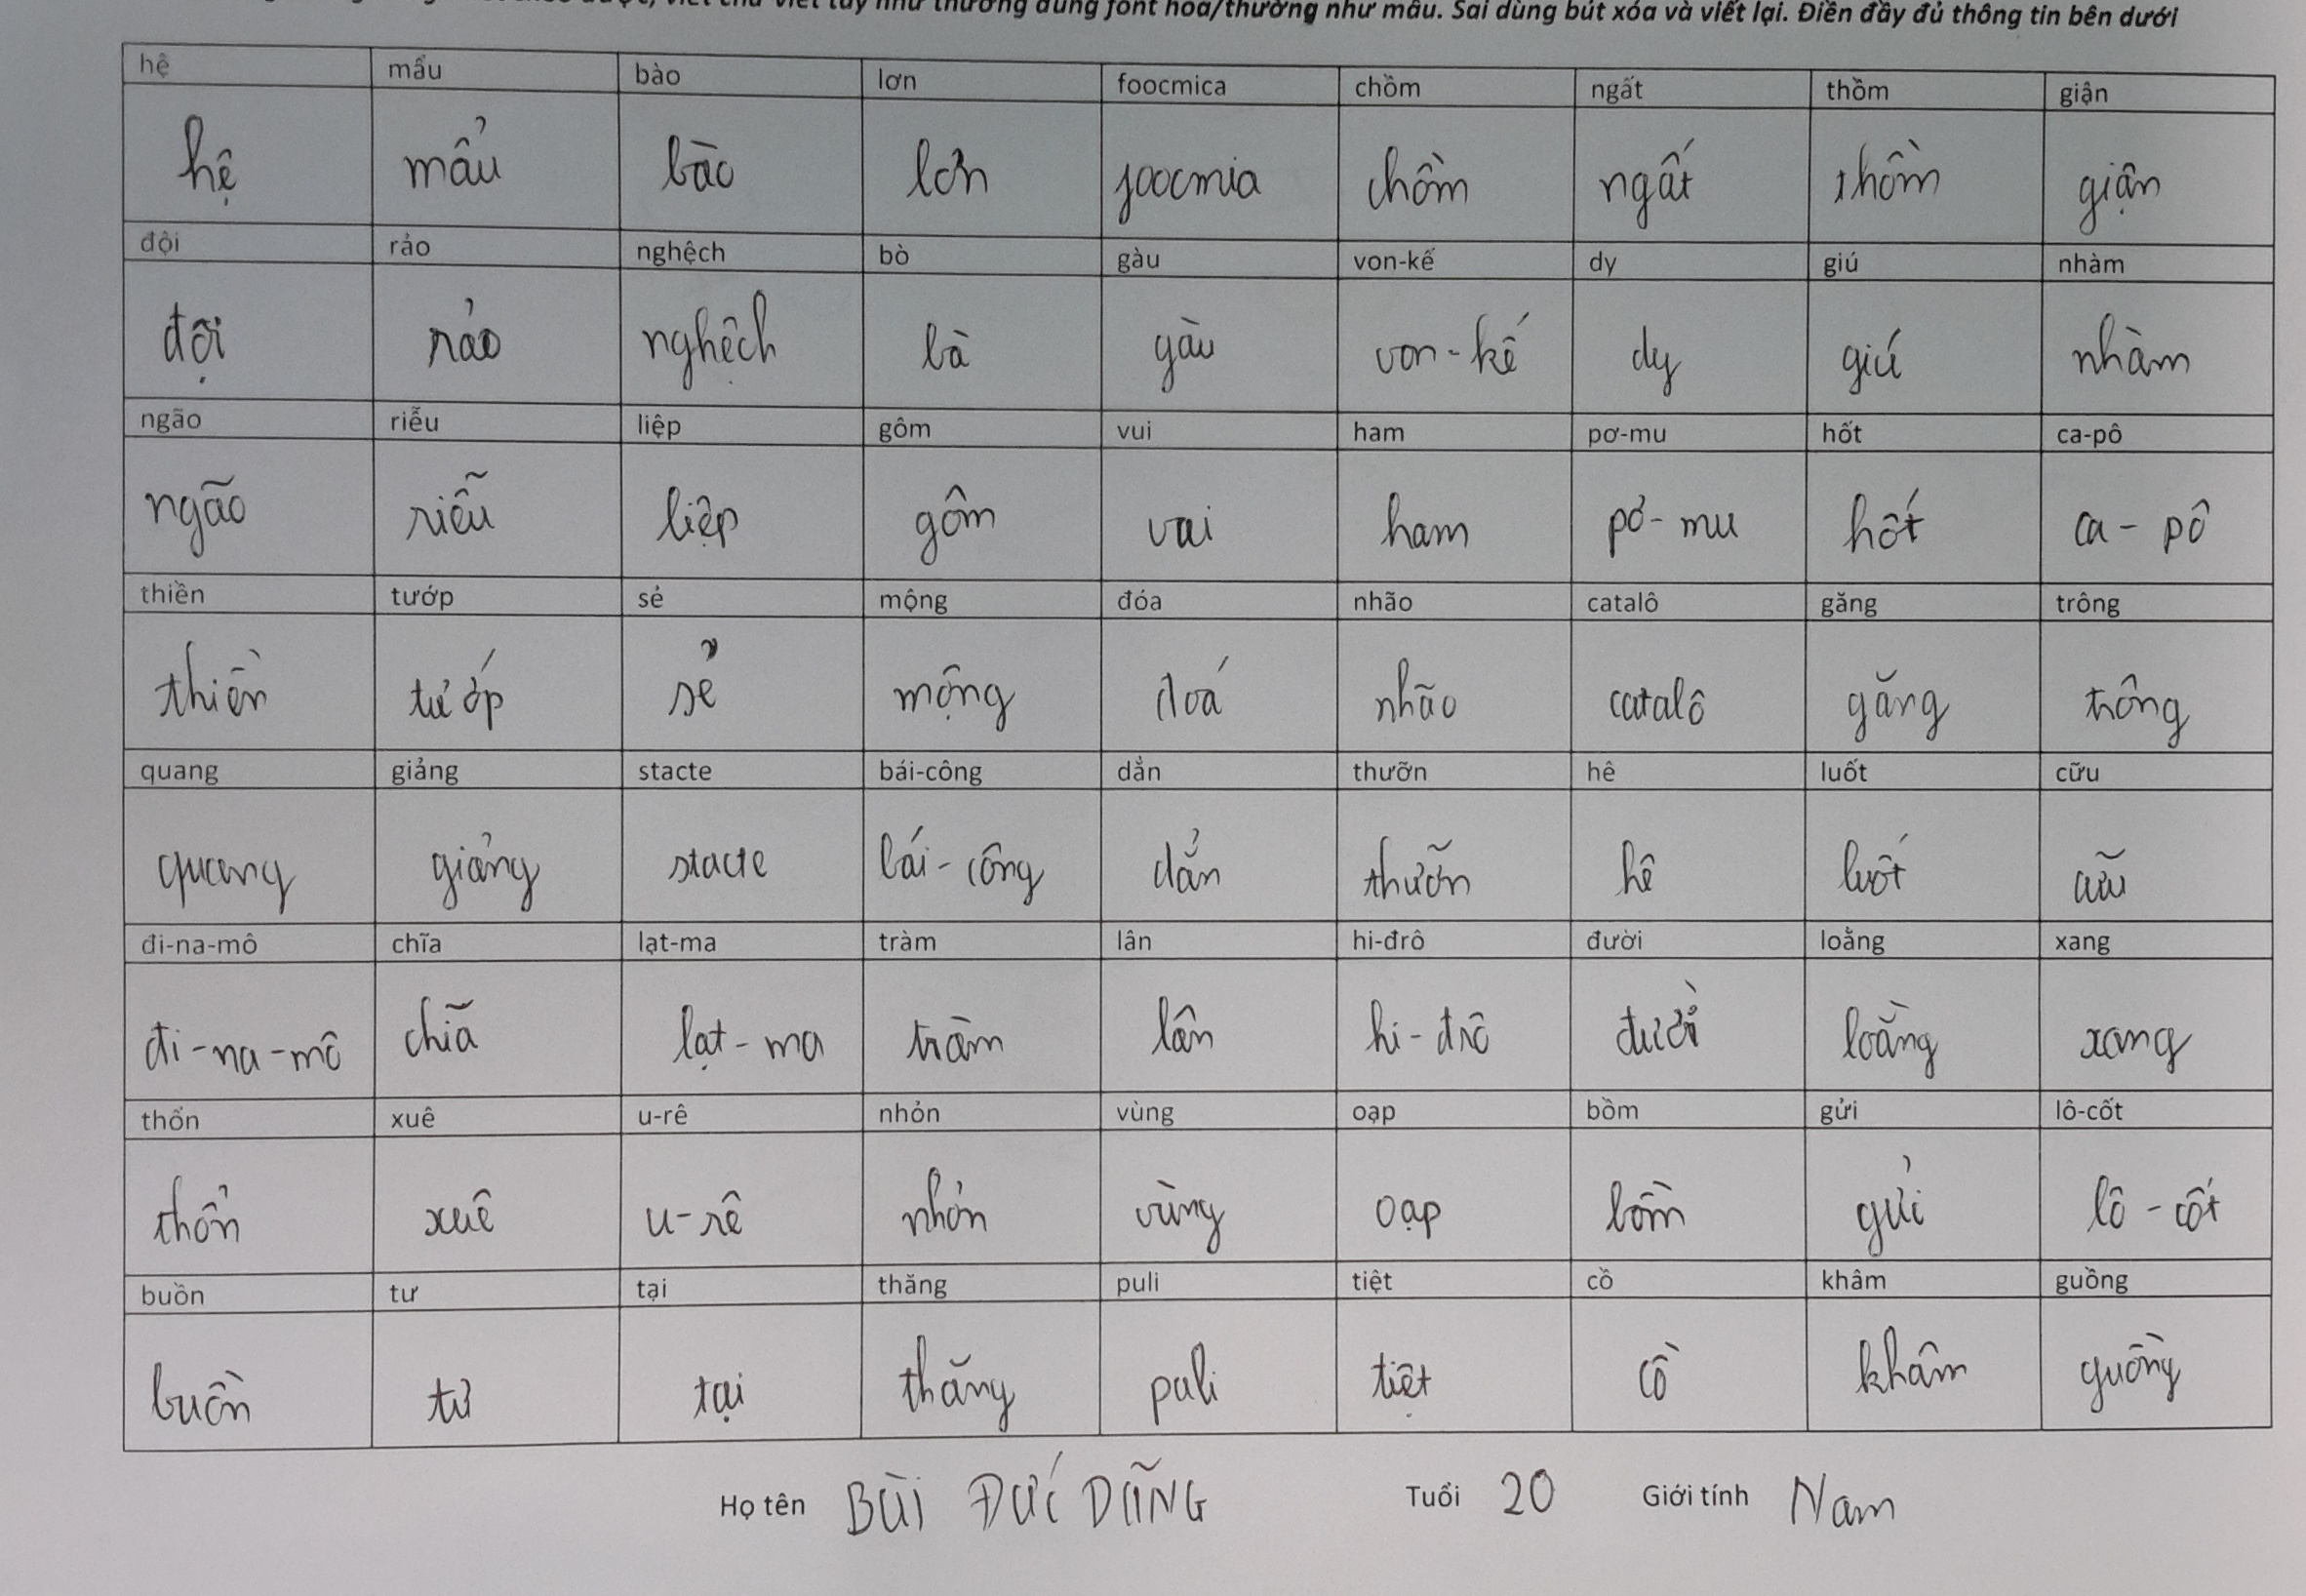 viết chữ viết tay như thường dùng font hoa/thường như mẫu. Sai dùng bút xóa và viết lại. Điền đầy đủ thông tin bên dưới
hệ mẩu bào lơn foocmica chồm ngất thồm giận
hệ mẩu bào lơn foocmia chồm ngất thồm giận
đội rảo nghệch bò gàu von-kế dy giú nhàm
đội rảo nghệch bà gàu von-kế dy giú nhàm
ngão riễu liệp gôm vui ham pơ-mu hốt ca-pô
ngão riễu liệp gôm vui ham pơ-mu hốt ca-pô
thiền tướp sẻ mộng đóa nhão catalô găng trông
thiền tướp sẻ mộng đoá nhão catalô găng trông
quang giảng stacte bái-công dẳn thưỡn hê luốt cữu
quang giảng stacte bái-công dẳn thưỡn hê luốt cữu
đi-na-mô chĩa lạt-ma tràm lân hi-đrô đười loằng xang
đi-na-mô chĩa lạt-ma tràm lân hi-đrô đười loằng xang
thổn xuê u-rê nhỏn vùng oạp bồm gửi lô-cốt
thổn xuê u-rê nhỏn vùng oạp bồm gửi lô-cốt
buồn tư tại thăng puli tiệt cồ khâm guồng
buồn tư tại thăng puli tiệt cồ khâm guồng
Họ tên BÙI ĐỨC DŨNG Tuổi 20 Giới tính Nam